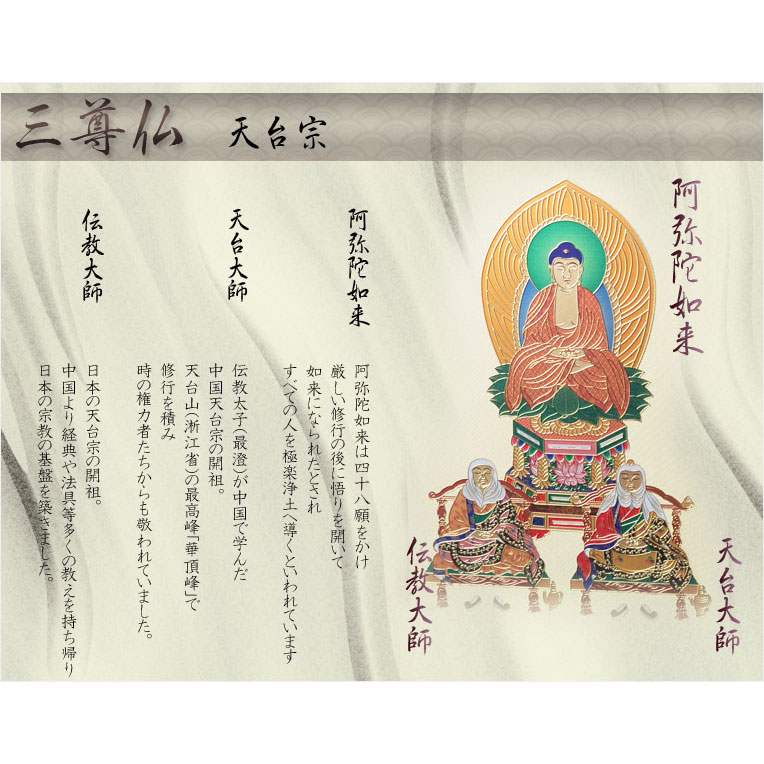 三尊仏 天台宗
阿弥陀如来
天台大師
伝教大師
阿弥陀如来
阿弥陀如来は四十八願をかけ
厳しい修行の後に悟りを開いて
如来になられたとされ
すべての人を極楽浄土へ導くといわれています
天台大師
伝教太子(最澄)が中国で学んだ
中国天台宗の開祖。
天台山(淅江省)の最高峰「華頂峰」で
修行を積み
時の権力者たちからも敬われていました。
伝教大師
日本の天台宗の開祖。
中国より経典や法具等多くの教えを持ち帰り
日本の宗教の基盤を築きました。